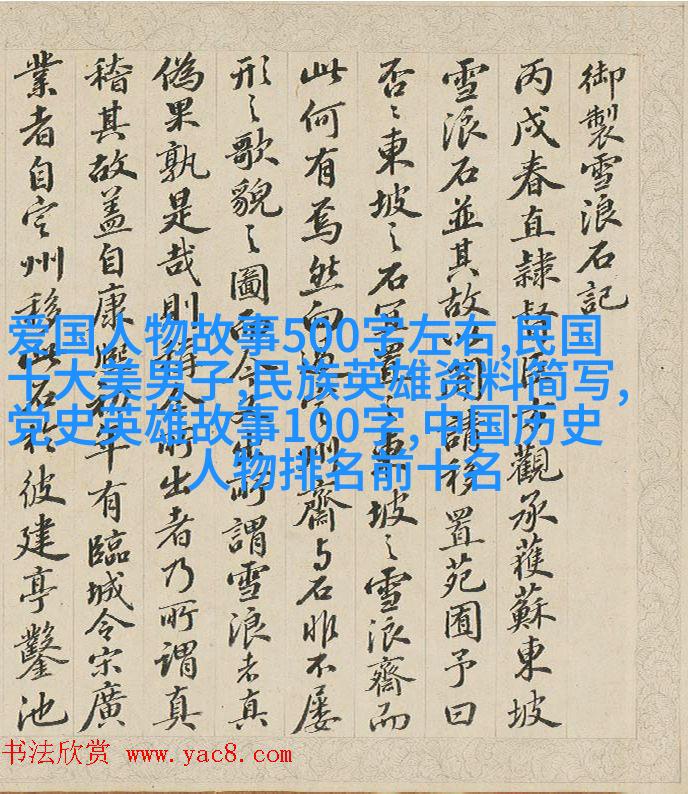 御製雪浪石記
丙戌春直隸督臣方觀承獲蘇東坡
雪浪石並其故以圖請移置苑囿予曰
否〻東坡〻石宜置〻東坡〻雪浪齋而
此何有焉然向過定州齋与石非不屢
形〻歌貌〻圖而今所謂雪浪者真
偽果孰是哉則今所出者乃所謂真
稽其故盖自康熙初年有臨城令宋廣
業者自定州移此石於彼建亭鑿池
爱国人物故事500字左右,民国
十大美男子,民族英雄资料简写,
党史英雄故事100字,中国历史
人物排名前十名
书法欣赏 www.yac8.com